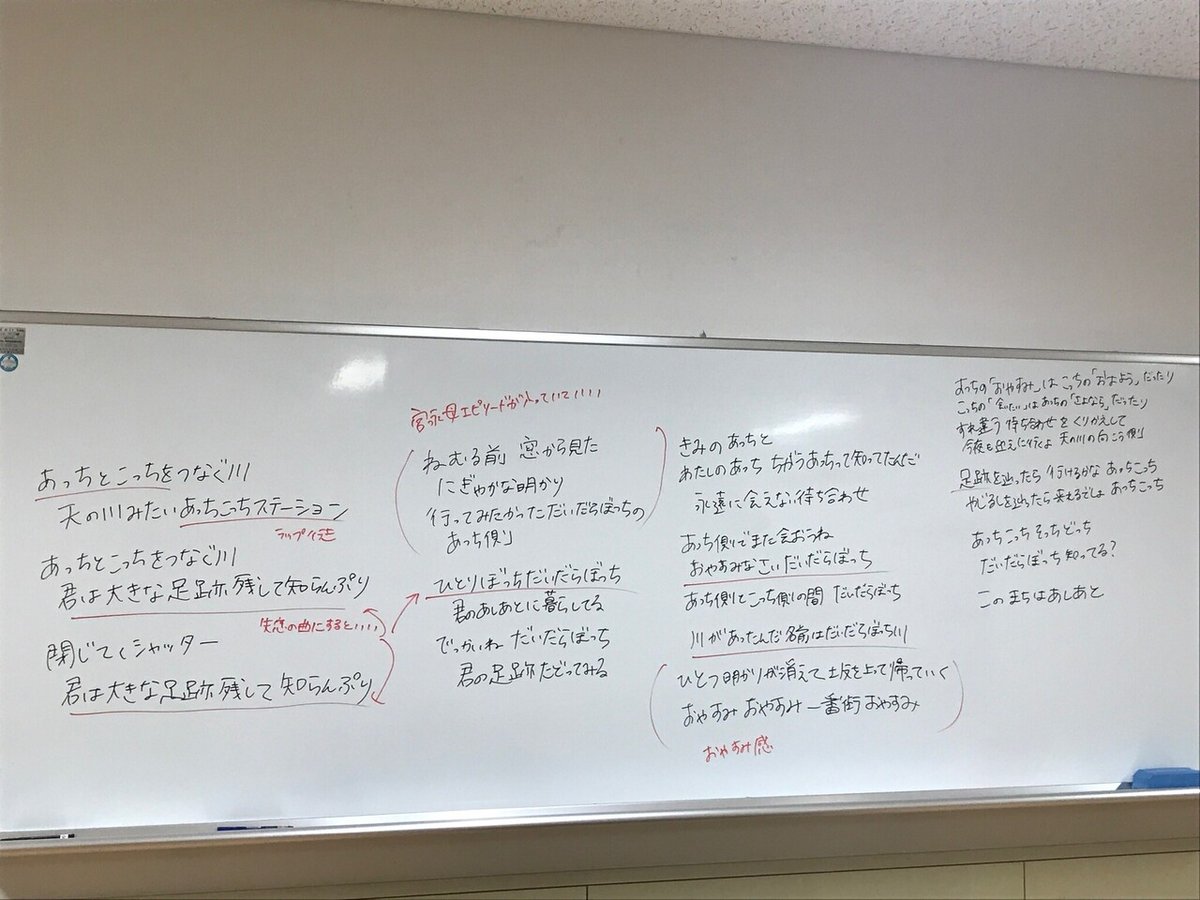 あっちとこっちをつなぐ川
天の川みたいあっちこっちステーション
ラップ
あっちとこっちをつなぐ川
君は大きな足跡残して知らんぷり
失恋の曲にすると‥‥
閉じてくシャッター
君は大きな足跡残して知らんぷり
宮永母エピソードが入っていていい
ねむる前 窓から見た
にぎやかな明かり
行ってみたかっただいだらぼっちの
あっち側
ひとりぼっちだいだらぼっち
君のあしあとに暮らしてる
でっかいね だいだらぼっち
君の足跡たどってみる
きみのあっちと
わたしのあっち ちがうあっちって知ってたんだ
永遠に会えない待ち合わせ
あっち側でまた会おうね
おやすみなさいだいだらぼっち
あっち側とこっち側の間 だいだらぼっち
川があったんだ名前はだいだらぼっち川
ひとつ明かりが消えて 坂を上って帰っていく
おやすみ おやすみ 一番街おやすみ
おやすみ感
あっちの「おやすみ」は こっちの「おはよう」だったり
こっちの「会いたい」はあっちの「さよなら」だったり
すれ違う 待ち合わせを くりかえして
今夜も迎えに行くよ 天の川の向こう側
足跡を辿ったら 行けるかな あっちこっち
やじるしを辿ったら 来れるでしょ あっちこっち
あっちこっち そっちどっち
だいだらぼっち 知ってる？
このまちはあしあと